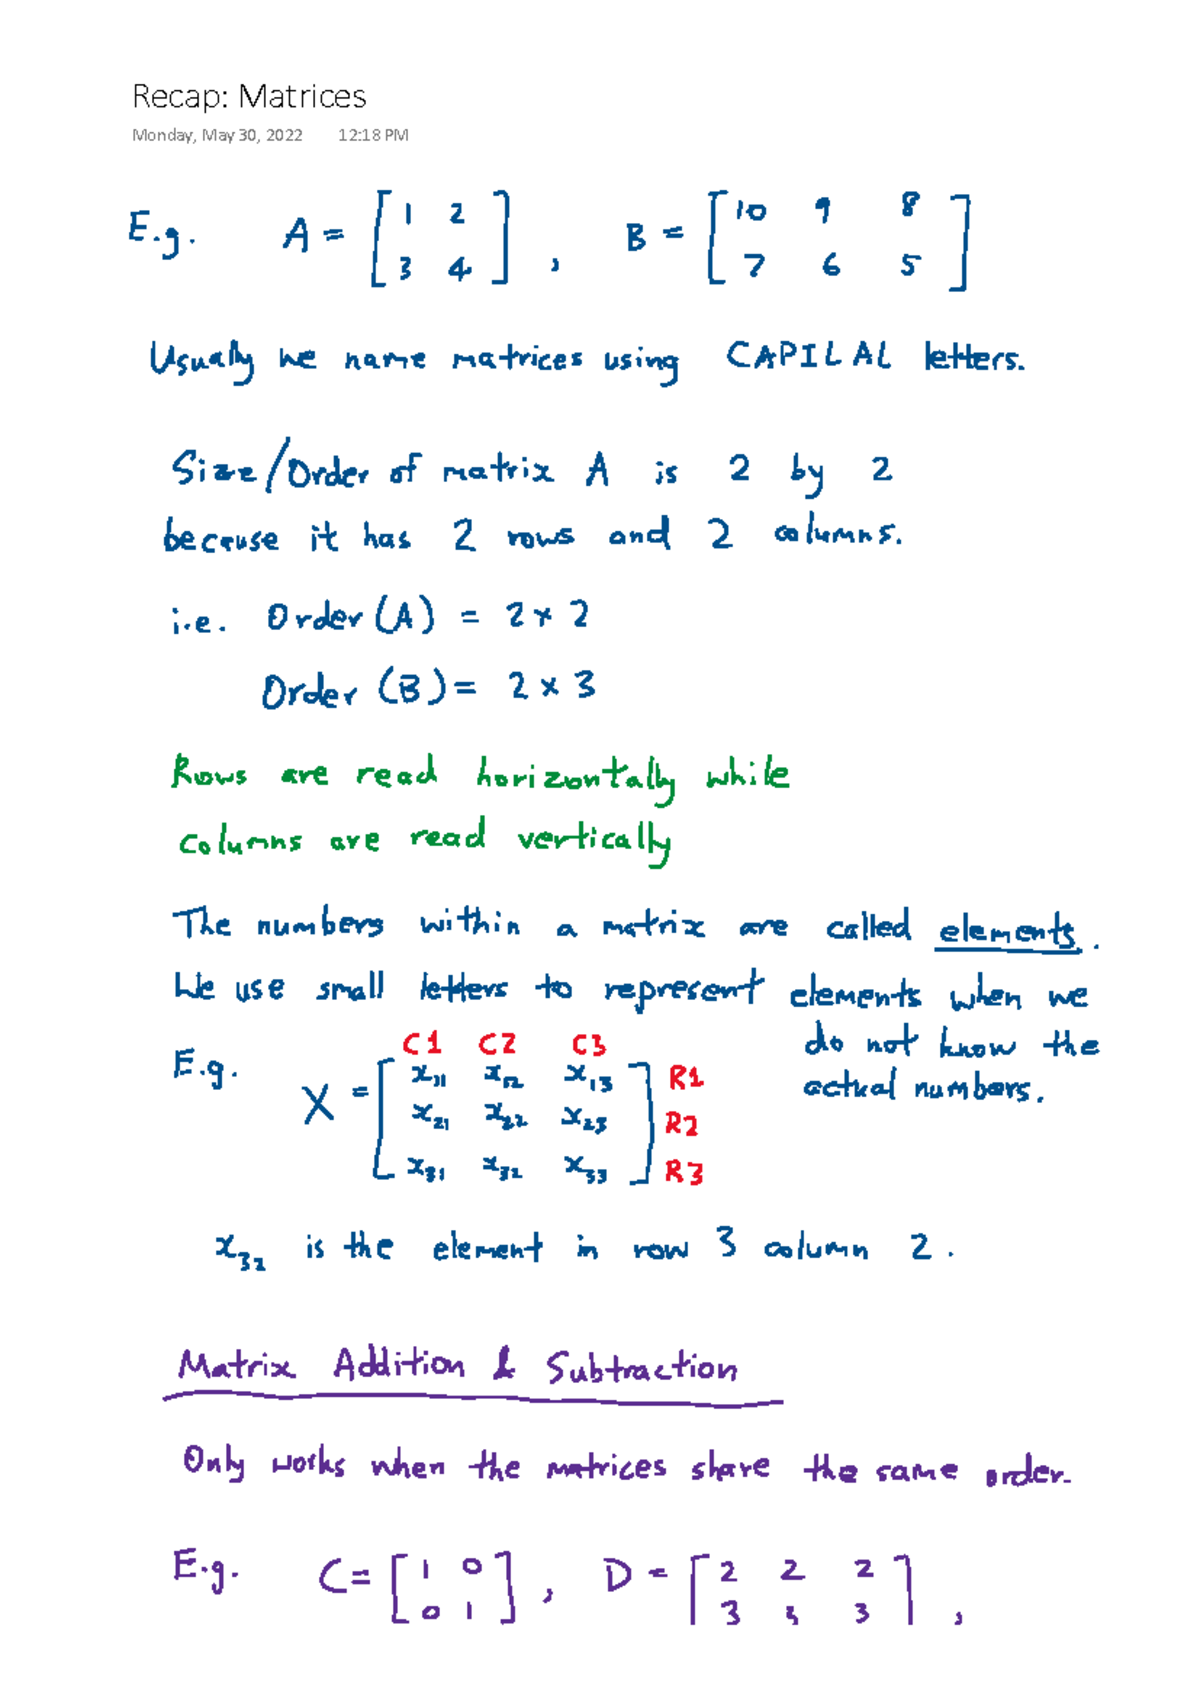 Recap: Matrices
Monday, May 30, 2022 12:18 PM
E.g. A = [1 2 3 4], B = [10 9 8 7 6 5]
Usually we name matrices using CAPILAL letters.
Size/Order of matrix A is 2 by 2
because it has 2 rows and 2 columns.
i.e. Order (A) = 2 × 2
Order (B) = 2 × 3
Rows are read horizontally while
columns are read vertically
The numbers within a matrix are called elements.
We use small letters to represent elements when we
do not know the
actual numbers.
C1 C2 C3
E.g. X = [x₁₁ x₁₂ x₁₃ R1
x₂₁ x₂₂ x₂₃ R2
x₃₁ x₃₂ x₃₃] R3
x₃₂ is the element in row 3 column 2.
Matrix Addition & Subtraction
Only works when the matrices share the same order.
E.g. C = [1 0 0 1], D = [2 2 2 3 3 3],